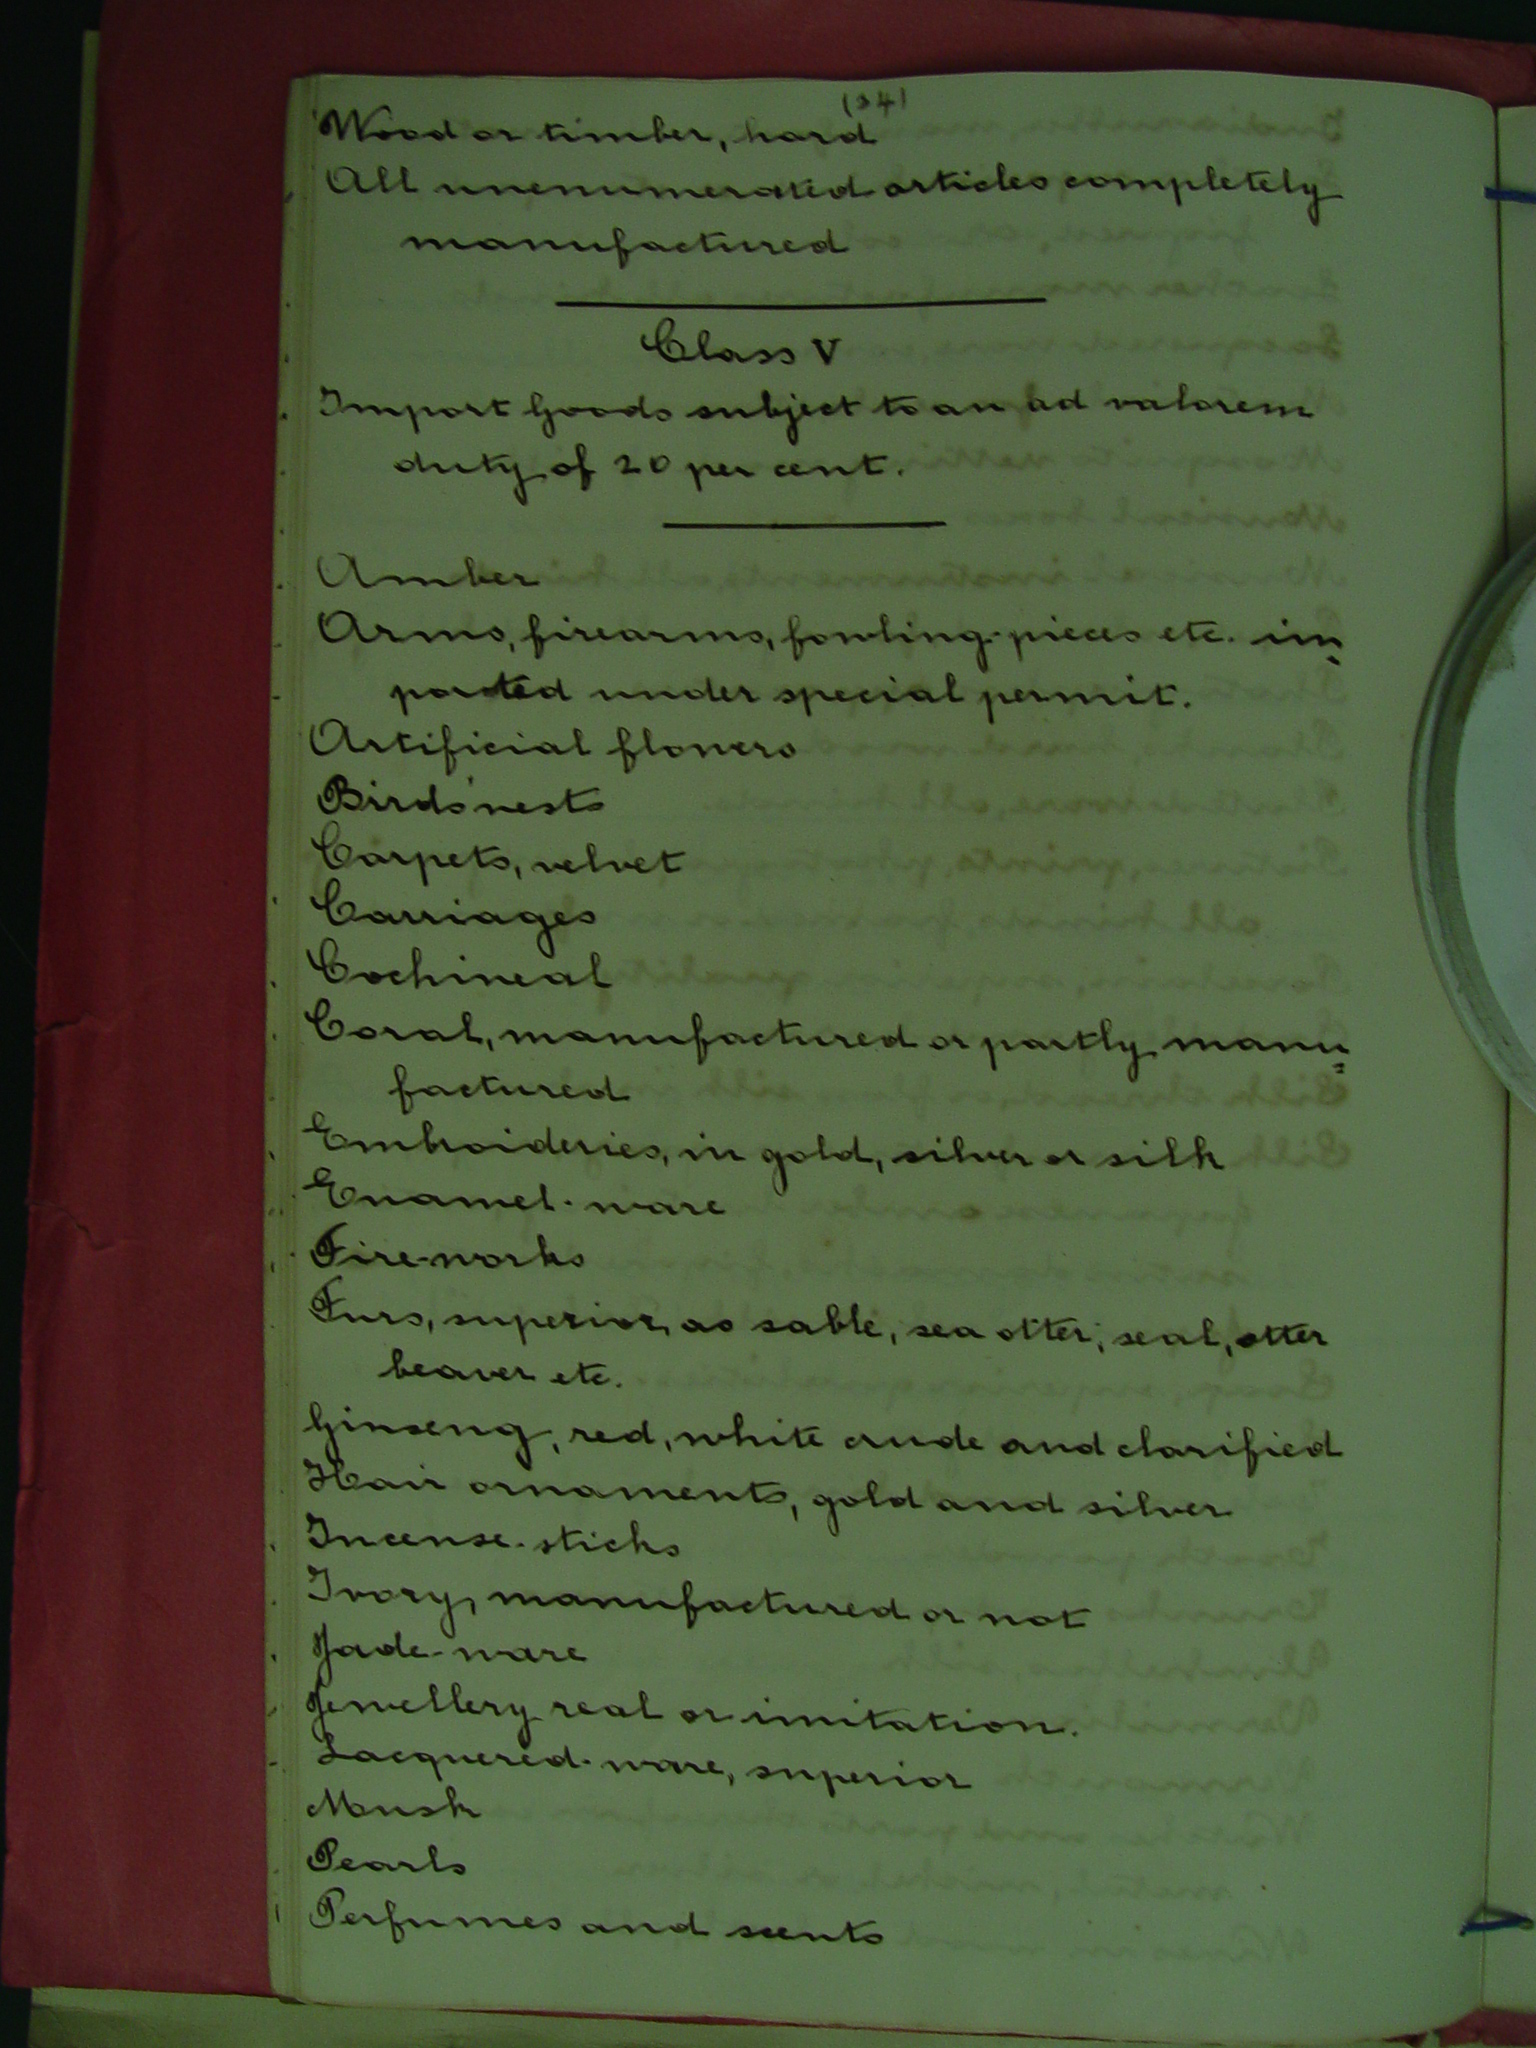 (34)
Wood or timber, hard
All unenumerated articles completely
manufactured
Class V
Import Goods subject to an ad valorem
duty of 20 per cent.
Amber
Arms, firearms, fowling-pieces etc. im-
ported under special permit.
Artificial flowers
Birds' nests
Carpets, velvet
Carriages
Cochineal
Coral, manufactured or partly manu=
factured
Embroideries, in gold, silver or silk
Enamel-ware
Fire-works
Furs, superior, as sable, sea otter, seal, otter
beaver etc.
Ginseng, red, white crude and clarified
Hair ornaments, gold and silver
Incense-sticks
Ivory, manufactured or not
Jade-ware
Jewellery real or imitation.
Lacquered-ware, superior
Musk
Pearls
Perfumes and scents